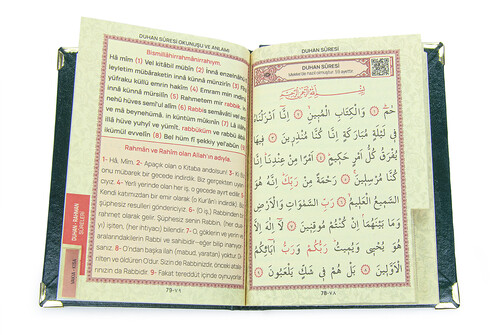 DUHAN SÛRESİ OKUNUŞU VE ANLAMI
Bismillâhirrahmânirrahîym.
Hâ mîm (1) Vel kitâbil mübîn (2) İnnâ enzelnâhü
leyletim mübâraketin innâ künnâ münzirîn (3)
yüfraku küllü emrin hakîm (4) Emram min indinâ
innâ künnâ mürsilîn (5) Rahmetem mir rabbik,
nehû hüves semî'ul alîm (6) Rabbis semâvâti vel
ve mâ beynehümâ. in küntüm mûkınîn (7) Lâ
illâ hüve yuhyî ve yümît. rabbüküm ve rabbü
ikümül evvelîn (8) Bel hüm fî şekkiy yel'abûn
Rahmân ve Rahîm olan Allah'ın adıyla.
1- Hâ, Mîm. 2- Apaçık olan o Kitaba andolsun! 3-
onu mübarek bir gecede indirdik. Biz gerçekten
oyarız. 4- Yerli yerinde olan her iş, o gecede ayırt edilir.
Kendi katımızdan bir emir olarak (o Kur'ân'ı indirdik).
şüphesiz resulleri göndericiyiz. 6- (O iş,) Rabbinden
rahmet olarak gelir. Şüphesiz senin Rabbin, (her
yı) işiten, (her ihtiyacı) bilendir. 7- O, göklerin ve yerin
aralarındakilerin Rabbi ve sahibidir
sanız. 8- O'ndan başka ilah (mabud, yaratan) yoktur.
rilten ve öldüren O'dur. Sizin de Rabbinizdir, önceki
rınızın da Rabbidir. 9- Fakat tereddüt içinde oynuyorlar.
DUHAN - RAHMAN
SÛRELERİ
79-٧٩
DUHAN SÛRESİ
DUHAN SÛRESİ
Mekke'de nazil olmuştur. 59 ayettir.
بِسْمِ اللّٰهِ الرَّحْمٰنِ الرَّحِيمِ
حٰمٓ ﴿١﴾ وَالْكِتَابِ الْمُبِينِ ﴿٢﴾ اِنَّٓا اَنْزَلْنَاهُ
فِي لَيْلَةٍ مُبَارَكَةٍ اِنَّا كُنَّا مُنْذِرِينَ ﴿٣﴾ فِيهَا
يُفْرَقُ كُلُّ اَمْرٍ حَكِيمٍ ﴿٤﴾ اَمْرًا مِنْ عِنْدِنَا اِنَّا
كُنَّا مُرْسِلِينَ ﴿٥﴾ رَحْمَةً مِنْ رَبِّكَ اِنَّهُ هُوَ
السَّمِيعُ الْعَلِيمُ ﴿٦﴾ رَبِّ السَّمٰوَاتِ وَالْاَرْضِ
وَمَا بَيْنَهُمَا اِنْ كُنْتُمْ مُوقِنِينَ ﴿٧﴾ لَٓا اِلٰهَ اِلَّا
هُوَ يُحْيِي وَيُمِيتُ رَبُّكُمْ وَرَبُّ اٰبَٓائِكُمُ
الْاَوَّلِينَ ﴿٨﴾ بَلْ هُمْ فِي شَكٍّ يَلْعَبُونَ ﴿٩﴾
78-٧٨